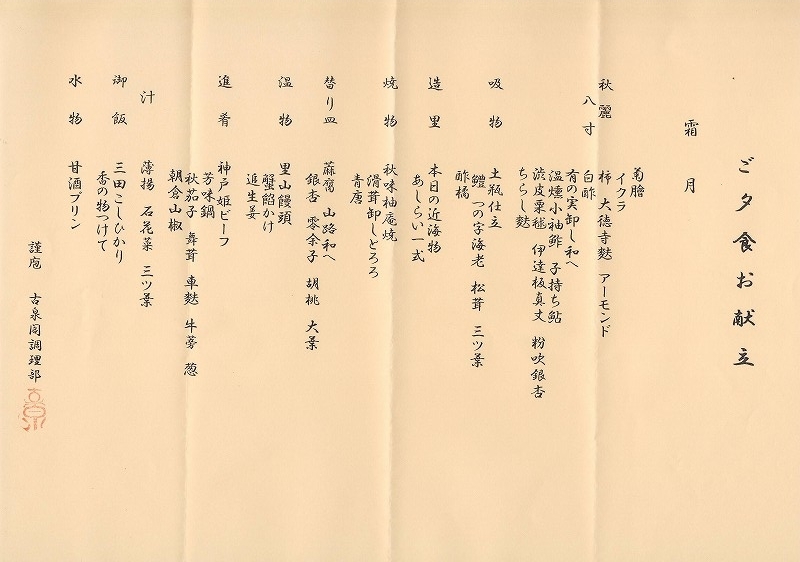 ご夕食お献立
霜月
秋麗
八寸
菊膾
イクラ
柿 大徳寺麩 アーモンド
白酢
有の実卸し和へ
温燻小袖鮓 子持ち鮎
渋皮栗毬 伊達板真丈 粉吹銀杏
ちらし麩
吸物
土瓶仕立
鱧 つの字海老 松茸 三ツ葉
酢橘
造里
本日の近海物
あしらい一式
焼物
秋味柚庵焼
滑茸卸しとろろ
青唐
替り皿
蕪腐 山路和へ
銀杏 零余子 胡桃 大葉
温物
里山饅頭
蟹餡かけ
追生姜
進肴
神戸姫ビーフ
芳味鍋
秋茄子 舞茸 車麩 牛蒡 葱
朝倉山椒
汁
薄揚 石花菜 三ツ葉
御飯
三田こしひかり
香の物つけて
水物
甘酒プリン
謹庖 古泉閣調理部